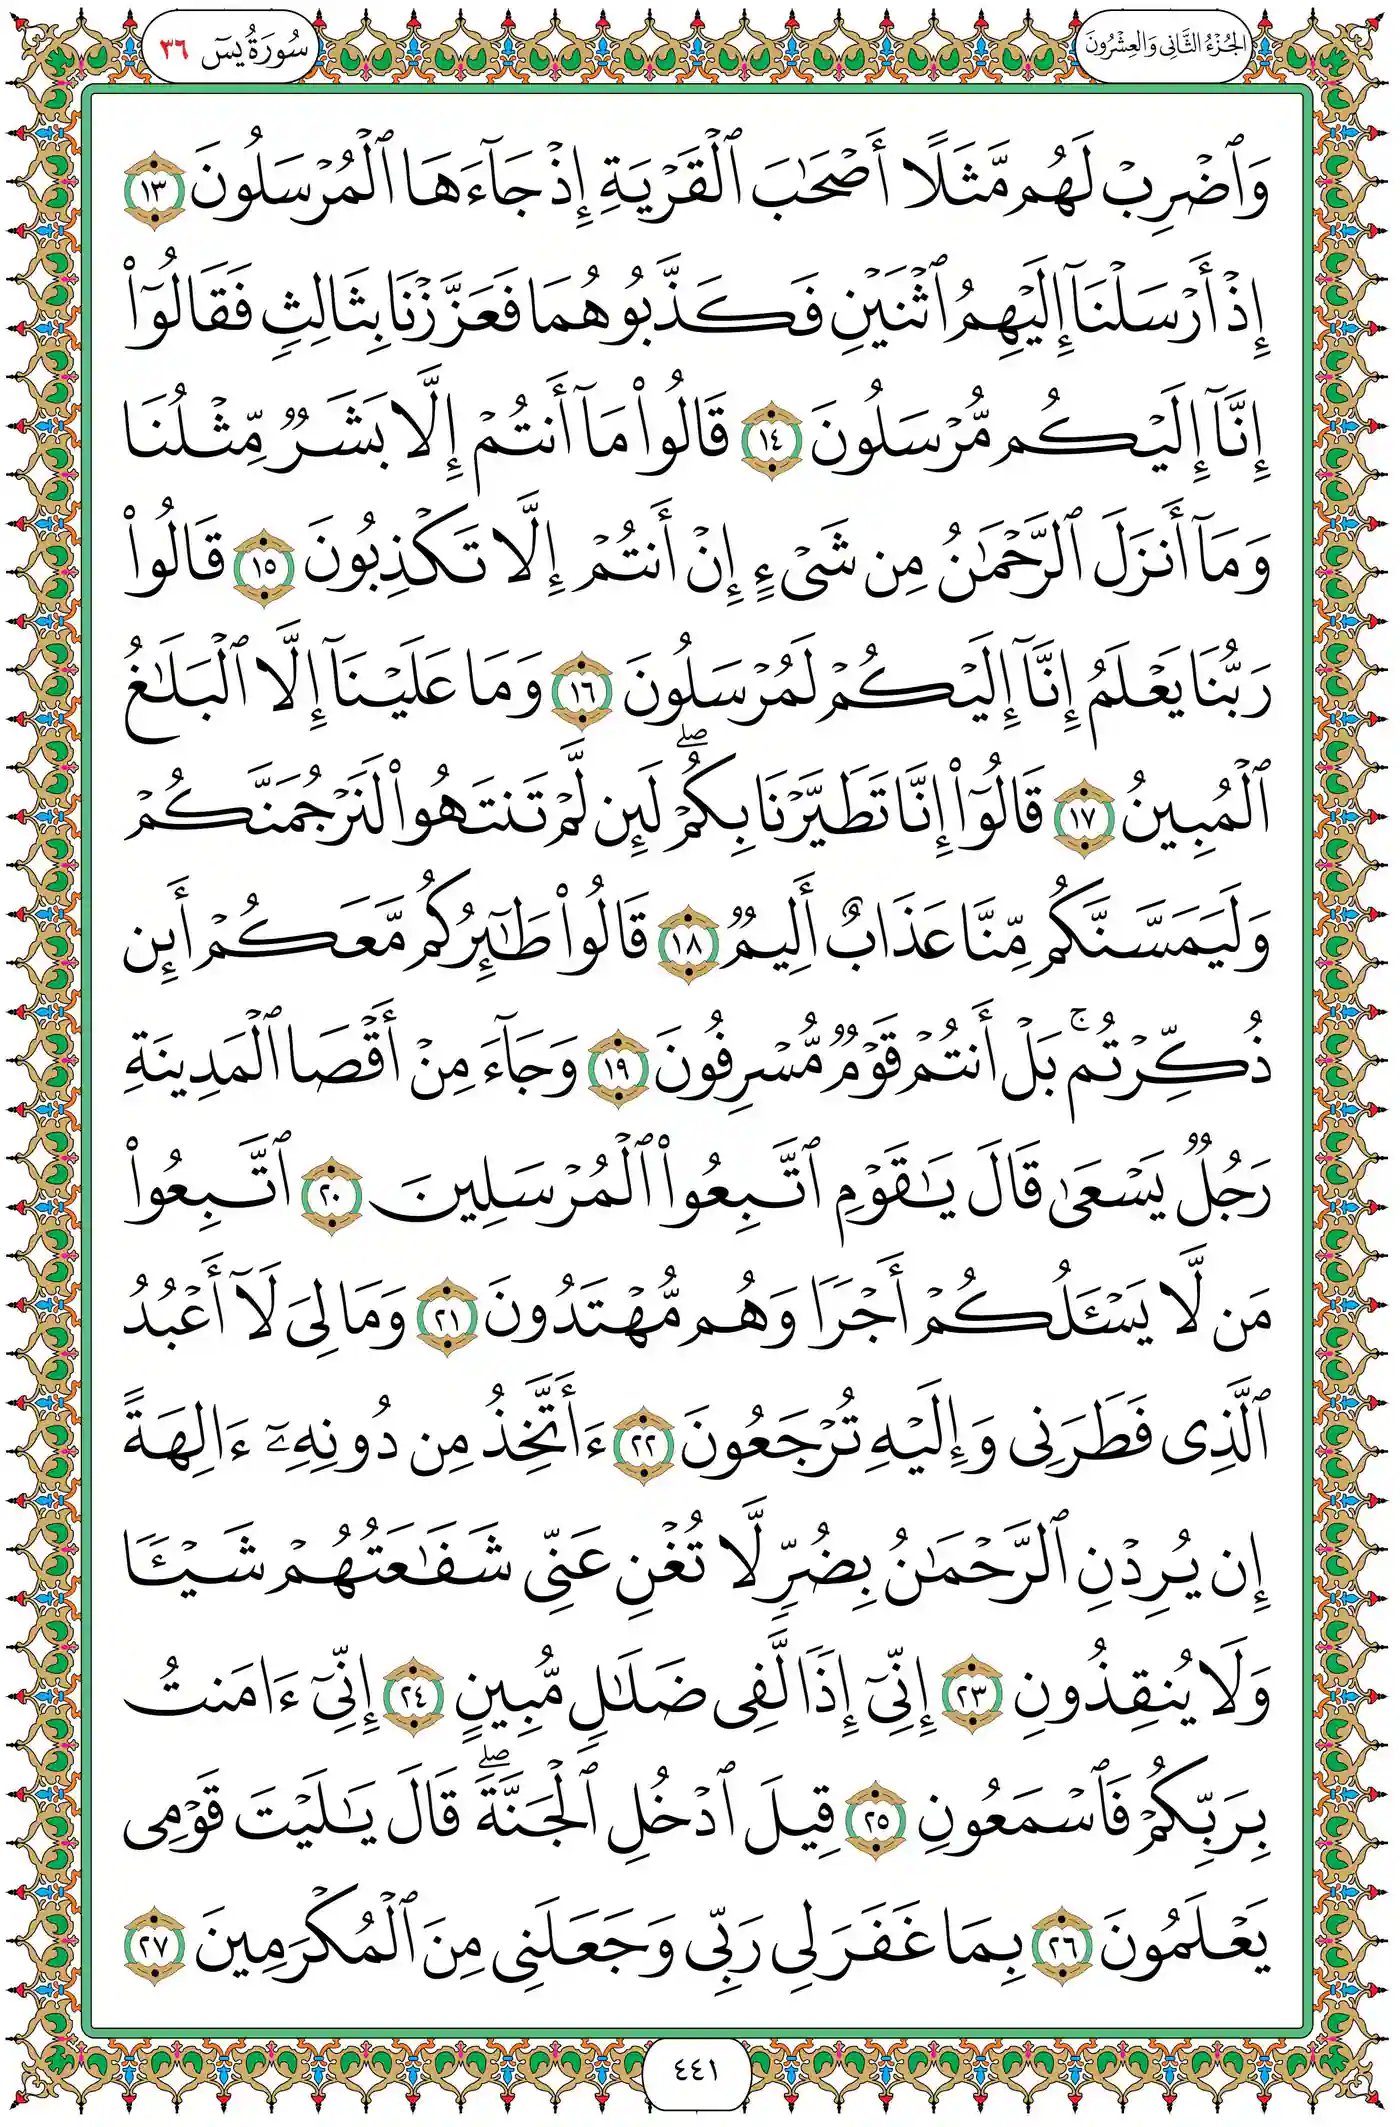 الجُزْءُ الثَّانِي وَالعِشْرُونَ
سُورَةُ يسٓ ٣٦
وَٱضْرِبْ لَهُم مَّثَلًا أَصْحَٰبَ ٱلْقَرْيَةِ إِذْ جَآءَهَا ٱلْمُرْسَلُونَ ١٣
إِذْ أَرْسَلْنَآ إِلَيْهِمُ ٱثْنَيْنِ فَكَذَّبُوهُمَا فَعَزَّزْنَا بِثَالِثٍ فَقَالُوٓا۟
إِنَّآ إِلَيْكُم مُّرْسَلُونَ ١٤ قَالُوا۟ مَآ أَنتُمْ إِلَّا بَشَرٌ مِّثْلُنَا
وَمَآ أَنزَلَ ٱلرَّحْمَٰنُ مِن شَىْءٍ إِنْ أَنتُمْ إِلَّا تَكْذِبُونَ ١٥ قَالُوا۟
رَبُّنَا يَعْلَمُ إِنَّآ إِلَيْكُمْ لَمُرْسَلُونَ ١٦ وَمَا عَلَيْنَآ إِلَّا ٱلْبَلَٰغُ
ٱلْمُبِينُ ١٧ قَالُوٓا۟ إِنَّا تَطَيَّرْنَا بِكُمْ ۖ لَئِن لَّمْ تَنتَهُوا۟ لَنَرْجُمَنَّكُمْ
وَلَيَمَسَّنَّكُم مِّنَّا عَذَابٌ أَلِيمٌ ١٨ قَالُوا۟ طَٰٓئِرُكُم مَّعَكُمْ أَئِن
ذُكِّرْتُم ۚ بَلْ أَنتُمْ قَوْمٌ مُّسْرِفُونَ ١٩ وَجَآءَ مِنْ أَقْصَا ٱلْمَدِينَةِ
رَجُلٌ يَسْعَىٰ قَالَ يَٰقَوْمِ ٱتَّبِعُوا۟ ٱلْمُرْسَلِينَ ٢٠ ٱتَّبِعُوا۟
مَن لَّا يَسْـَٔلُكُمْ أَجْرًا وَهُم مُّهْتَدُونَ ٢١ وَمَا لِىَ لَآ أَعْبُدُ
ٱلَّذِى فَطَرَنِى وَإِلَيْهِ تُرْجَعُونَ ٢٢ ءَأَتَّخِذُ مِن دُونِهِۦٓ ءَالِهَةً
إِن يُرِدْنِ ٱلرَّحْمَٰنُ بِضُرٍّ لَّا تُغْنِ عَنِّى شَفَٰعَتُهُمْ شَيْـًٔا
وَلَا يُنقِذُونِ ٢٣ إِنِّىٓ إِذًا لَّفِى ضَلَٰلٍ مُّبِينٍ ٢٤ إِنِّىٓ ءَامَنتُ
بِرَبِّكُمْ فَٱسْمَعُونِ ٢٥ قِيلَ ٱدْخُلِ ٱلْجَنَّةَ ۖ قَالَ يَٰلَيْتَ قَوْمِى
يَعْلَمُونَ ٢٦ بِمَا غَفَرَ لِى رَبِّى وَجَعَلَنِى مِنَ ٱلْمُكْرَمِينَ ٢٧
٤٤١